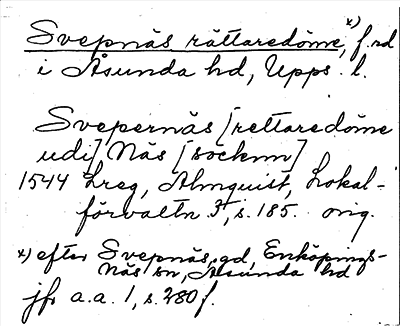 Svepnäs rättaredöme, x) f. rd
i Åsunda hd, Upps. l.
Svepernäs [rettaredöme
udi] Näs [socknn]
1544 Lreg, Almquist, Lokal-
förvaltn 3, s. 185. orig.
x) efter Svepnäs, gd, Enköpings-
Näs sn, Åsunda hd
jfr a.a. 1, s. 280 f.